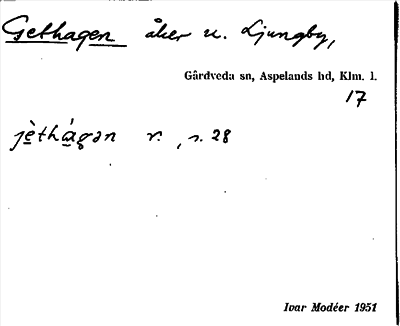 Gethagen åker u. Ljungby,
Gårdveda sn, Aspelands hd, Klm. l.
17
jèthágən r. , s. 28
Ivar Modéer 1951